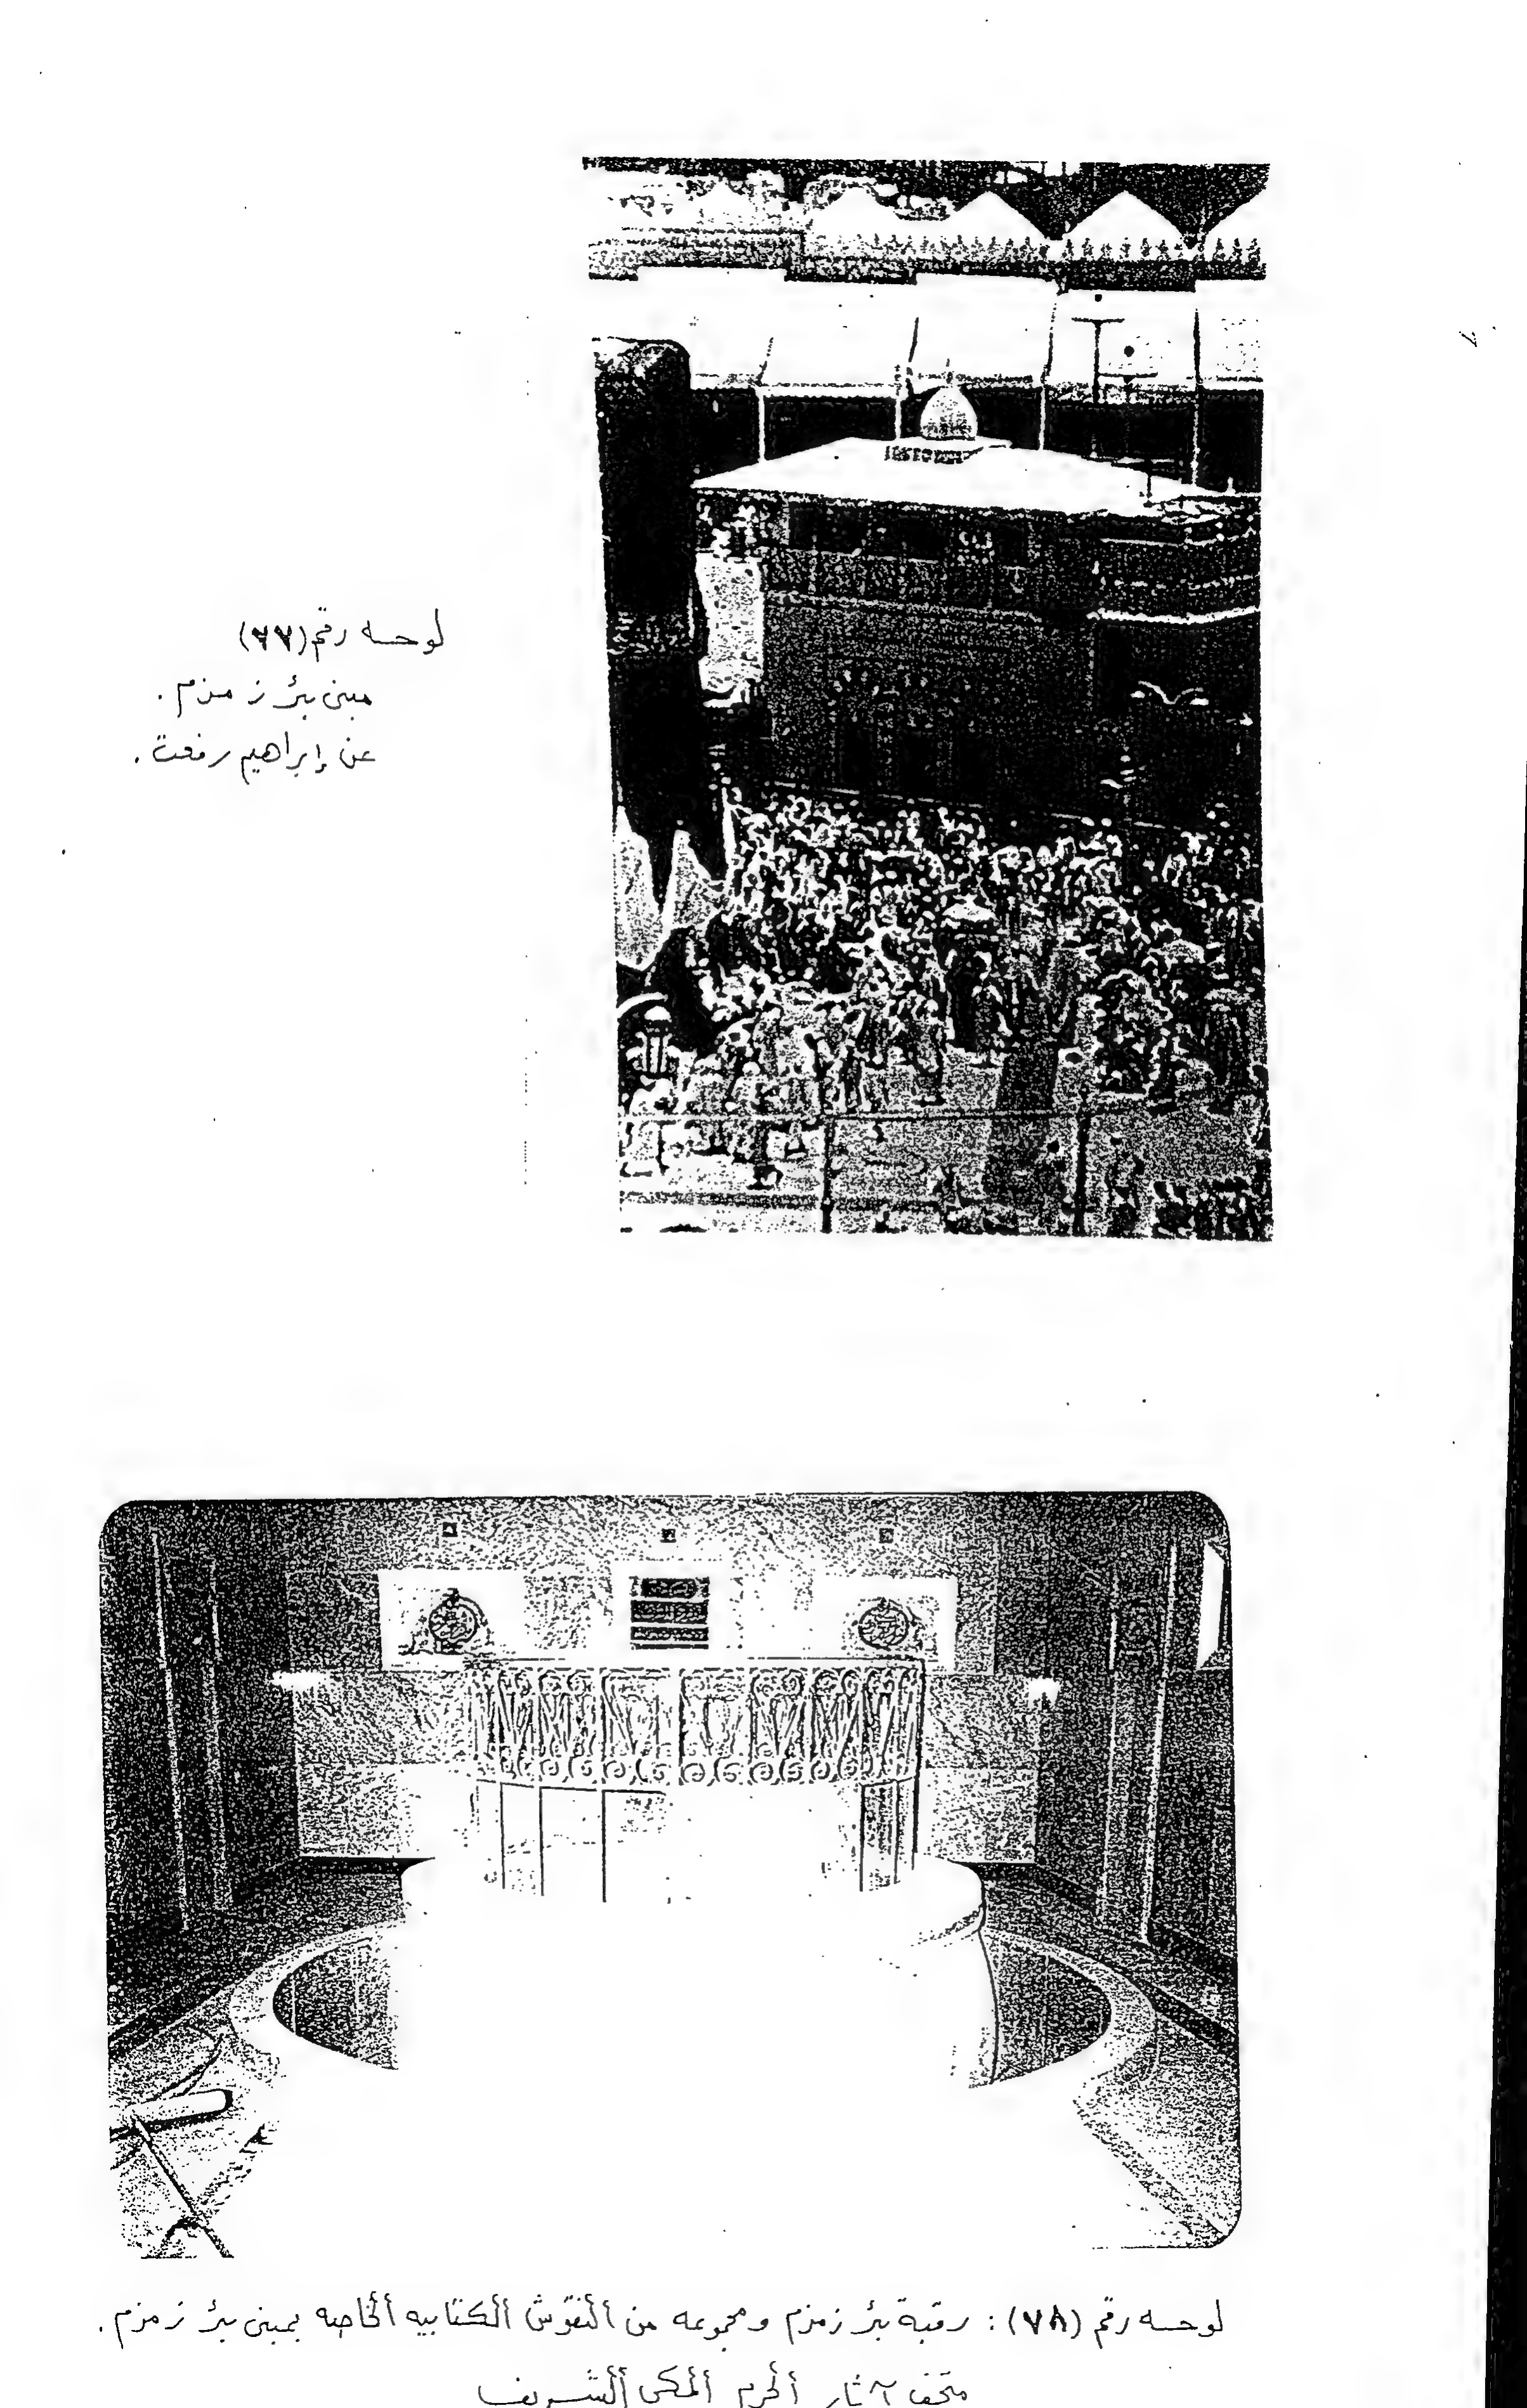 لوحه رقم (٧٧)
مبنى بئر زمزم .
عن إبراهيم رفعت .
لوحه رقم (٧٨) : رقبة بئر زمزم ومجموعه من النقوش الكتابيه الخاصه بمبنى بئر زمزم .
متحف آثار الحرم المكى الشريف